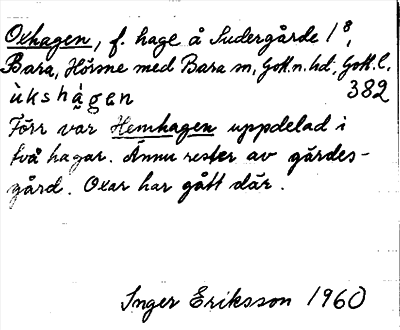 Oxhagen, f. hage å Sudergårde 1⁸,
Bara, Hörsne med Bara sn, Gotl.n.hd, Gotl.l.
ùkshàgen 382
Förr var Hemhagen uppdelad i
två hagar. Ännu rester av gärdes-
gård. Oxar har gått där.
Inger Eriksson 1960